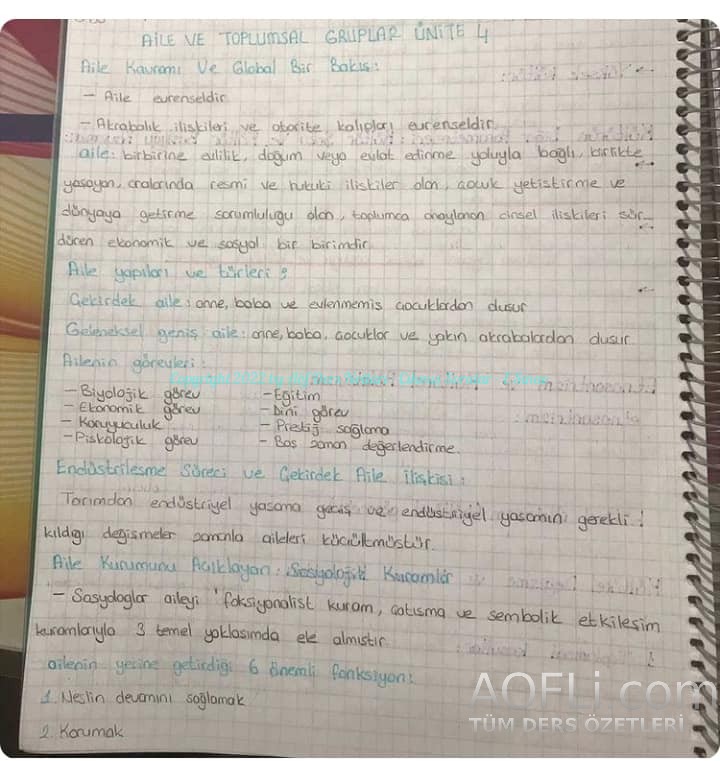 AİLE VE TOPLUMSAL GRUPLAR ÜNİTE 4
Aile Kavramı Ve Global Bir Bakış:
- Aile evrenseldir
- Akrabalık ilişkileri ve otorite kalıpları evrenseldir.
aile: birbirine evlilik, doğum veya evlat edinme yoluyla bağlı, birlikte
yaşayan, aralarında resmi ve hukuki ilişkiler olan, çocuk yetiştirme ve
dünyaya getirme sorumluluğu olan, toplumca onaylanan cinsel ilişkileri sür-
düren ekonomik ve sosyal bir birimdir.
Aile yapıları ve türleri:
Çekirdek aile: anne, baba ve evlenmemiş çocuklardan oluşur
Geleneksel geniş aile: anne, baba, çocuklar ve yakın akrabalardan oluşur.
Ailenin görevleri:
- Biyolojik görev - Eğitim
- Ekonomik görev - Dini görev
- Koruyuculuk - Prestij sağlama
- Piskolojik görev - Boş zaman değerlendirme.
Endüstrileşme Süreci ve Çekirdek Aile İlişkisi:
Tarımdan endüstriyel yaşama geçiş ve endüstriyel yaşamın gerekli
kıldığı değişmeler zamanla aileleri küçültmüştür.
Aile Kurumunu Açıklayan Sosyolojik Kuramlar
- Sosyologlar aileyi foksiyonalist kuram, çatışma ve sembolik etkileşim
kuramlarıyla 3 temel yaklaşımda ele almıştır.
ailenin yerine getirdiği 6 önemli fonksiyon:
1. Neslin devamını sağlamak
2. Korumak
AOFLi.com
TÜM DERS ÖZETLERİ